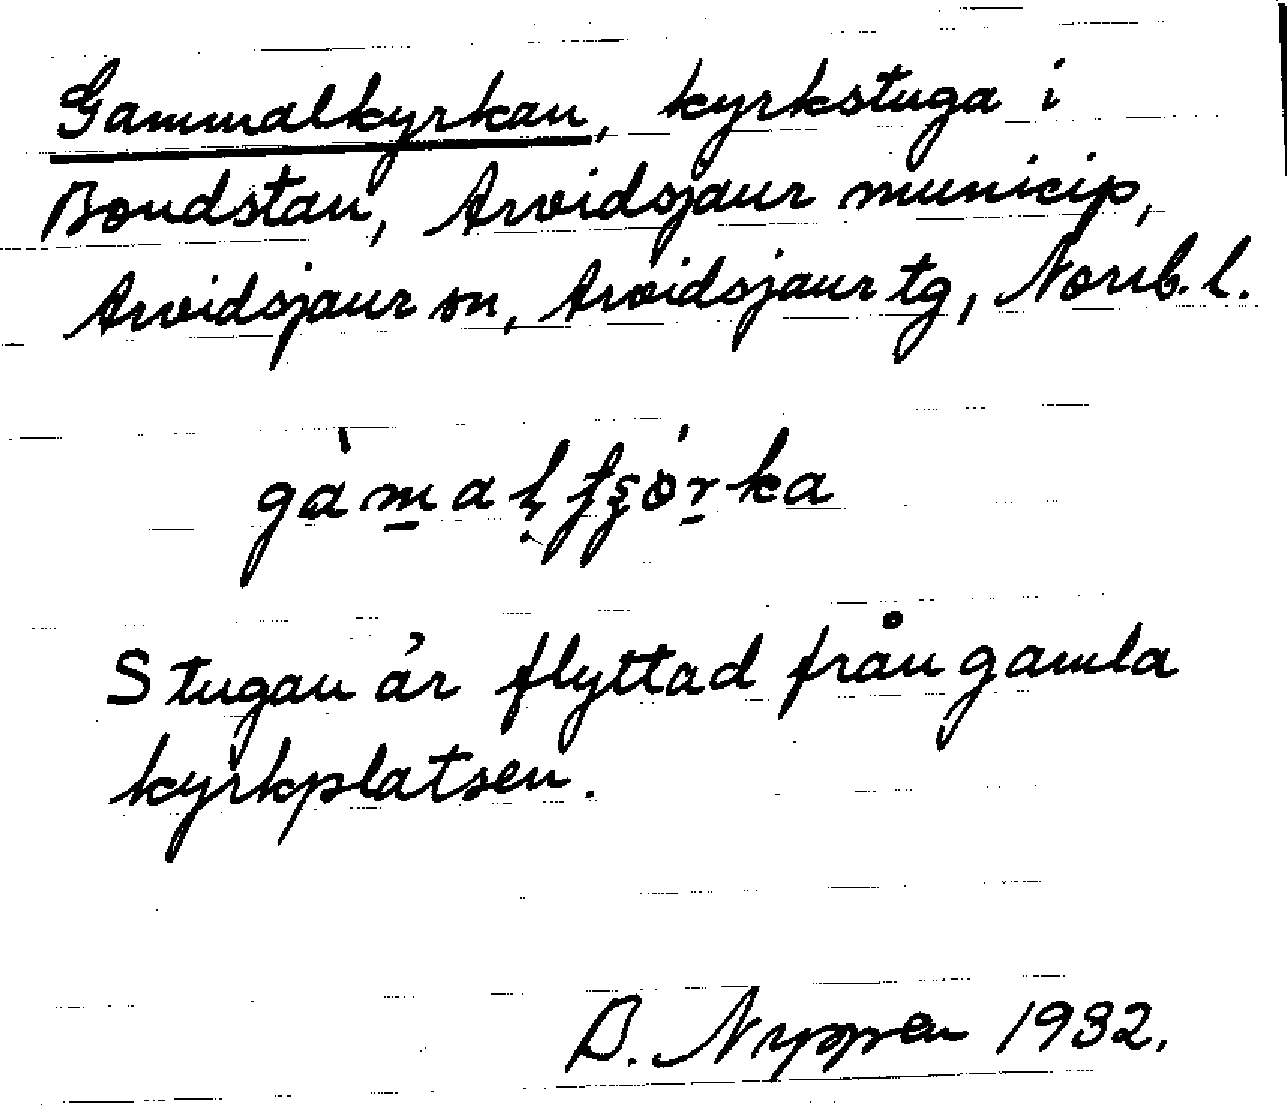 Gammalkyrkan, kyrkstuga i
Bondstan, Arvidsjaur municip,
Arvidsjaur sn, Arvidsjaur tg, Norrb. l.
Stugan är flyttad från gamla
kyrkplatsen.
B. Nyppen 1932.